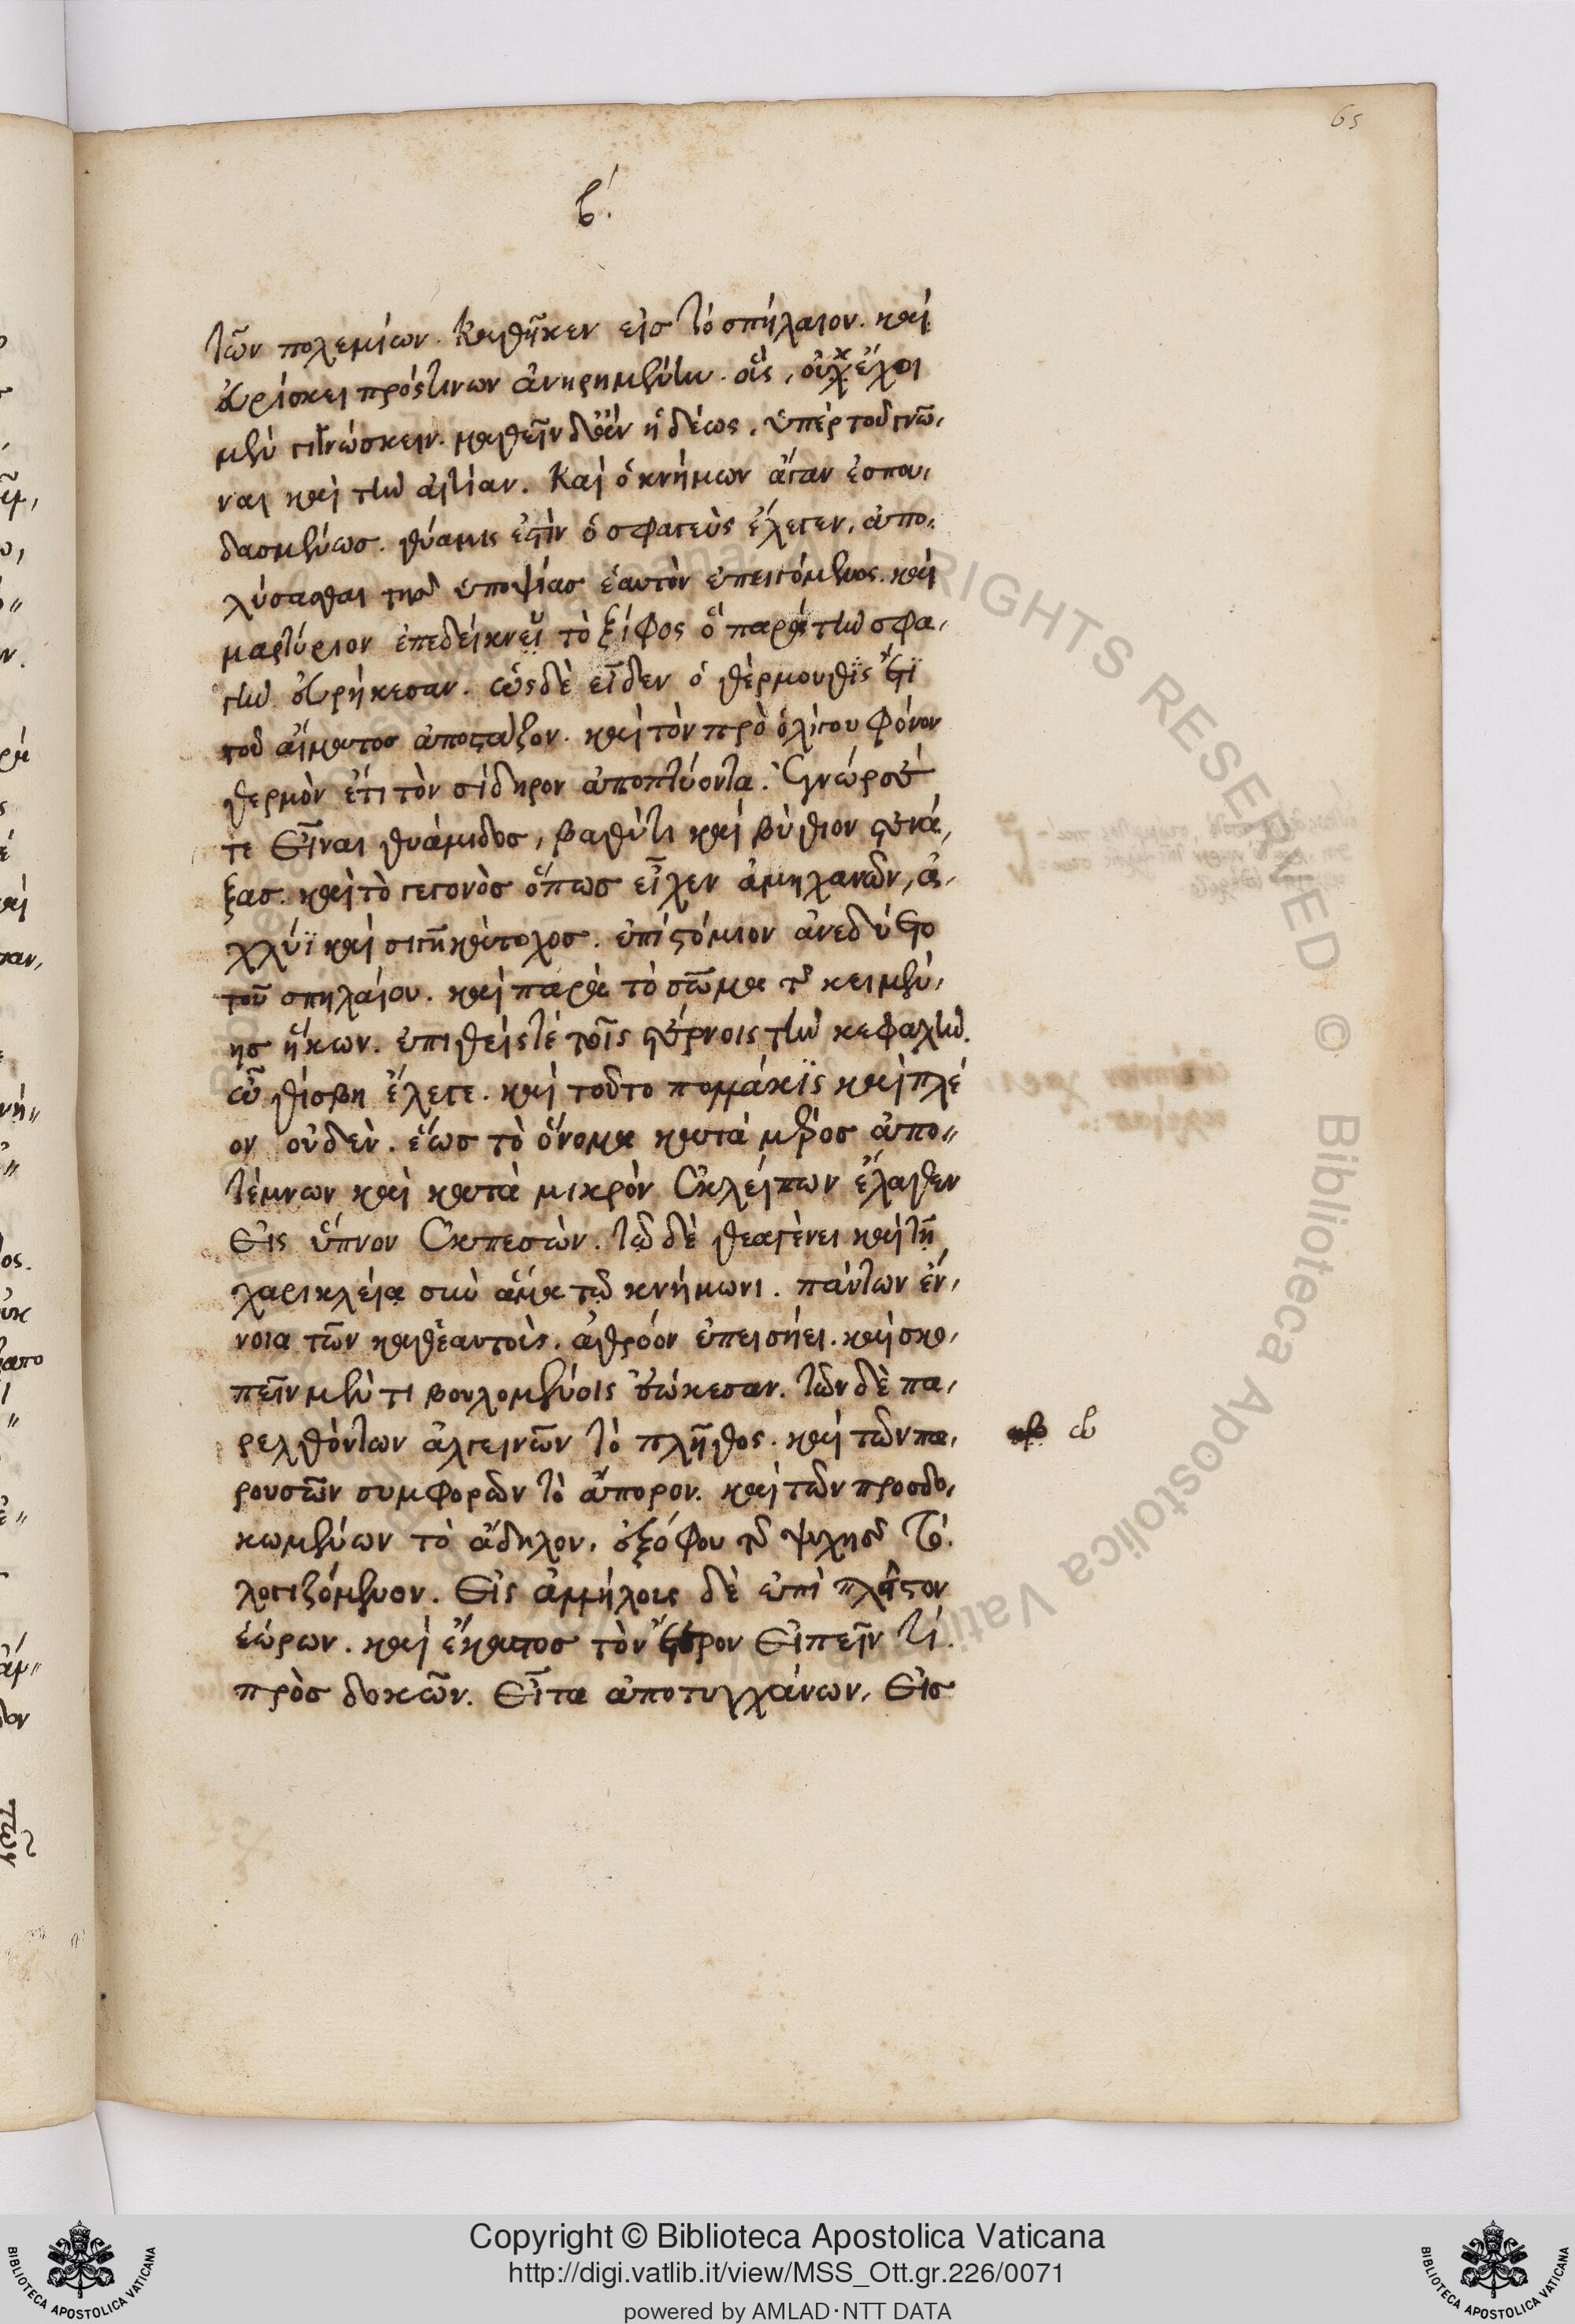 65
β΄.
τῶν πολεμίων. καθῆκεν εἰς τὸ σπήλαιον. καὶ
εὑρίσκει πρός τινων ἀνῃρημένην. οὓς, οὐχ ἔχοι
μὲν γινώσκειν. μαθεῖν δ' ἂν ἡδέως. ὑπὲρ τοῦ γνῶ,
ναι καὶ τὴν αἰτίαν. Καὶ ὁ κνήμων ἄγαν ἐσπου,
δασμένως. θύαμις ἐστὶν ὁ σφαγεὺς ἔλεγεν, ἀπο,
λύσασθαι τῆς ὑποψίας ἑαυτὸν ἐπειγόμενος. καὶ
μαρτύριον ἐπεδείκνυ τὸ ξίφος ὃ παρὰ τὴν σφα,
γὴν εὑρήκεσαν. ὡς δὲ εἶδεν ὁ θέρμουθις ἔτι
τοῦ αἵματος ἀποστάζον. καὶ τὸν πρὸ ὀλίγου φόνον
θερμὸν ἔτι τὸν σίδηρον ἀποπτύοντα. Γνώρσέ
τε εἶναι θυάμιδος, βαθύτι καὶ βύθιον στενά,
ξας. καὶ τὸ γεγονὸς ὅπως εἶχεν ἀμηχανῶν, ἀ,
χλύϊ καὶ σιγῇ κάτοχος. ἐπὶ στόμιον ἀνεδύετο
τοῦ σπηλαίου. καὶ παρὰ τὸ σῶμα τῆς κειμέν,
ης ἥκων. ἐπιθείς τε τοῖς στέρνοις τὴν κεφαλήν.
ὦ θίσβη ἔλεγε. καὶ τοῦτο πολλάκις καὶ πλέ
ον οὐδέν. ἕως τὸ ὄνομα κατὰ μέρος ἀπο〃
τέμνων καὶ κατὰ μικρὸν ἐκλείπων ἔλαθεν
εἰς ὕπνον ἐκπεσών. τῷ δὲ θεαγένει καὶ τῇ
χαρικλείᾳ σὺν ἅμα τῷ κνήμωνι. πάντων ἔν,
νοια τῶν καθ' ἑαυτοὺς. ἀθρόον ἐπεισήει. καὶ σκο,
πεῖν μέν τι βουλομένοις ἐῴκεσαν. τῶν δὲ πα,
ρελθόντων ἀλγεινῶν τὸ πλῆθος. καὶ τῶν πα,
ρουσῶν συμφορῶν τὸ ἄπορον. καὶ τῶν προσδο,
κωμένων τὸ ἄδηλον, ἐξόφου τῆς ψυχῆς τὸ.
λογιζόμενον. εἰς ἀλλήλους δὲ ἐπὶ πλεῖστον
ἑώρων. καὶ ἕκαστος τὸν ἕτερον εἰπεῖν τί.
πρὸς δοκῶν. εἶτα ἀποτυγχάνων, εἰς
Copyright © Biblioteca Apostolica Vaticana
http://digi.vatlib.it/view/MSS_Ott.gr.226/0071
powered by AMLAD·NTT DATA